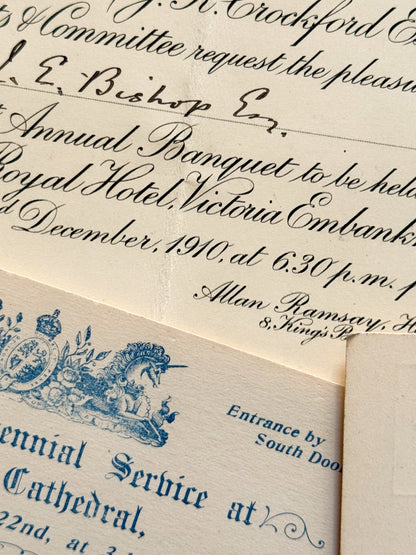 J. R. Crockford E
& Committee request the pleasu
J. E. Bishop Esq.
Annual Banquet to be hel
Royal Hotel, Victoria Embank
December, 1910, at 6.30 p.m.
Allan Ramsay, H
8, King's B
Entrance by
South Doo
ennial Service at
Cathedral,
22nd, at